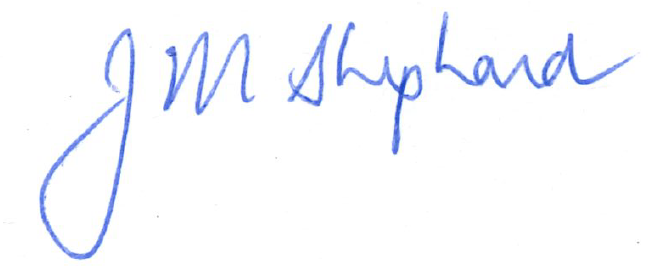 J M Shephard